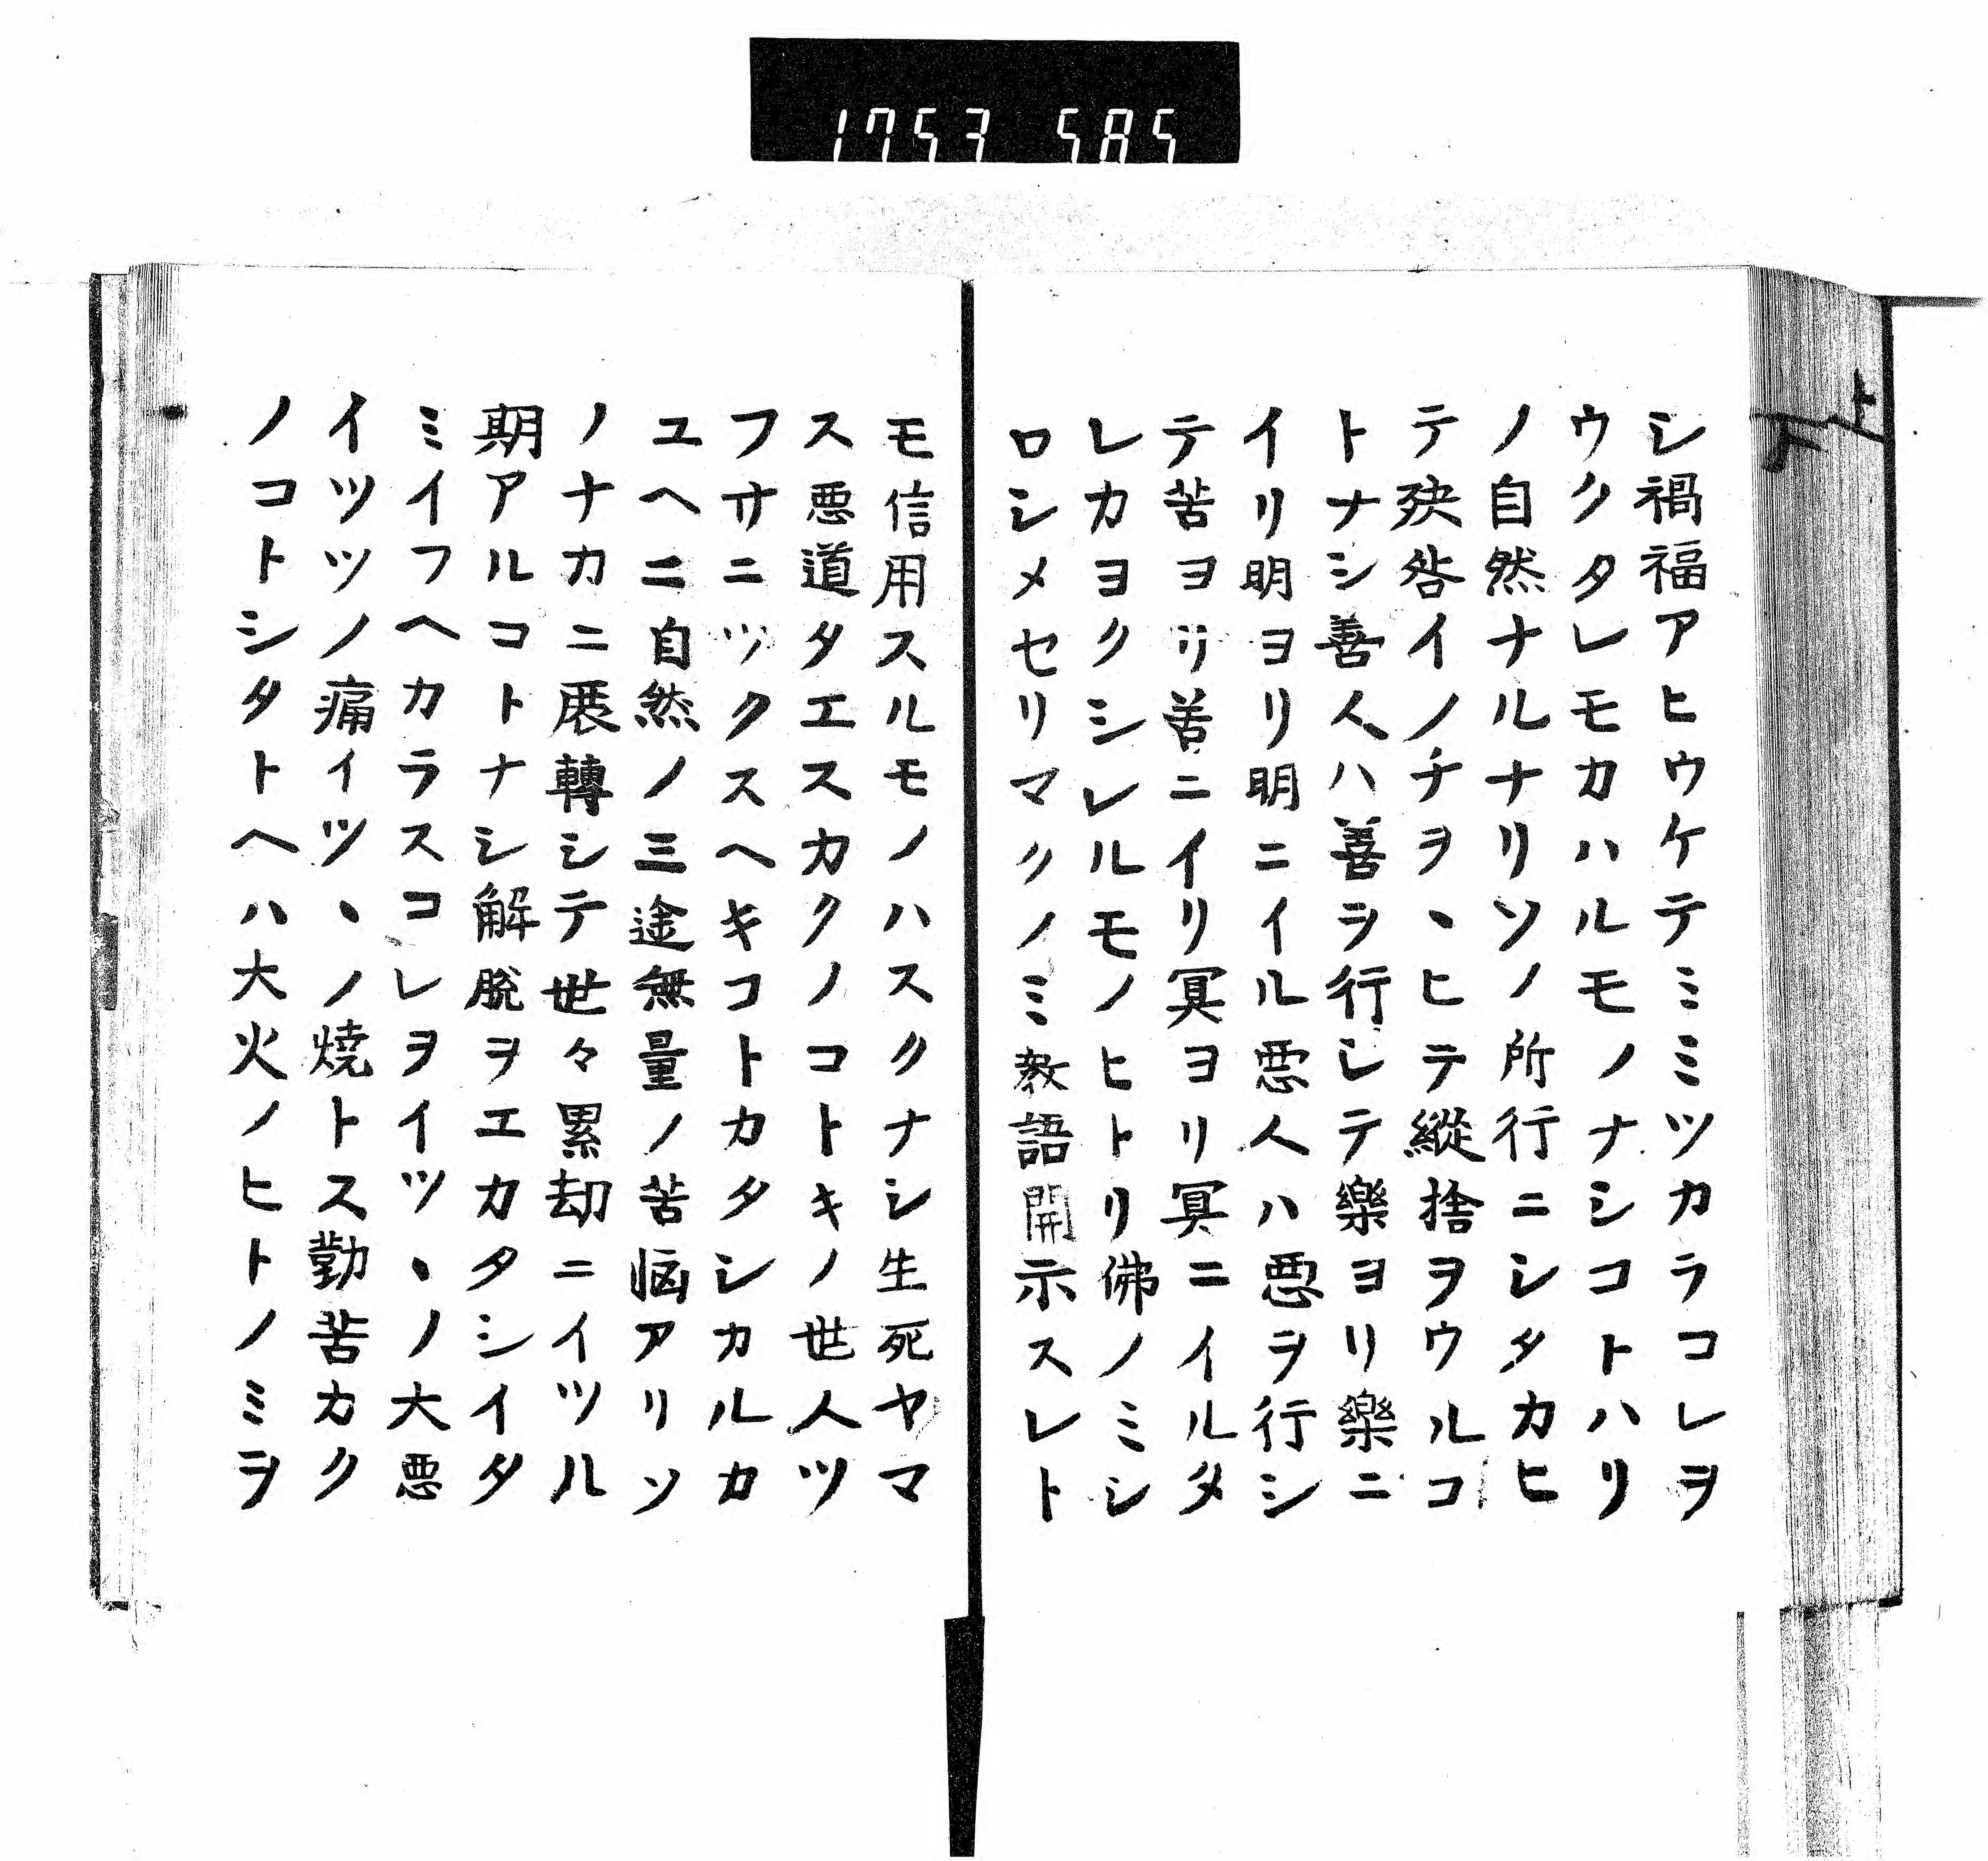 1753 585
シ禍福アヒウケテミミツカラコレヲ
ウクタレモカハルモノナシコトハリ
ノ自然ナルナリソノ所行ニシタカヒ
テ殃咎イノチヲヽヒテ縱捨ヲウルコ
トナシ善人ハ善ヲ行シテ樂ヨリ樂ニ
イリ明ヨリ明ニイル悪人ハ悪ヲ行シ
テ苦ヨリ苦ニイリ冥ヨリ冥ニイルタ
レカヨクシレルモノヒトリ佛ノミシ
ロシメセリマクノミ教語開示スレト
モ信用スルモノハスクナシ生死ヤマ
ス悪道タエスカクノコトキノ世人ツ
フサニツクスヘキコトカタシカルカ
ユヘニ自然ノ三途無量ノ苦悩アリソ
ノナカニ展轉シテ世々累劫ニイツル
期アルコトナシ解脱ヲエカタシイタ
ミイフヘカラスコレヲイツヽノ大悪
イツツノ痛イツヽノ焼トス勤苦カク
ノコトシタトヘハ大火ノヒトノミヲ